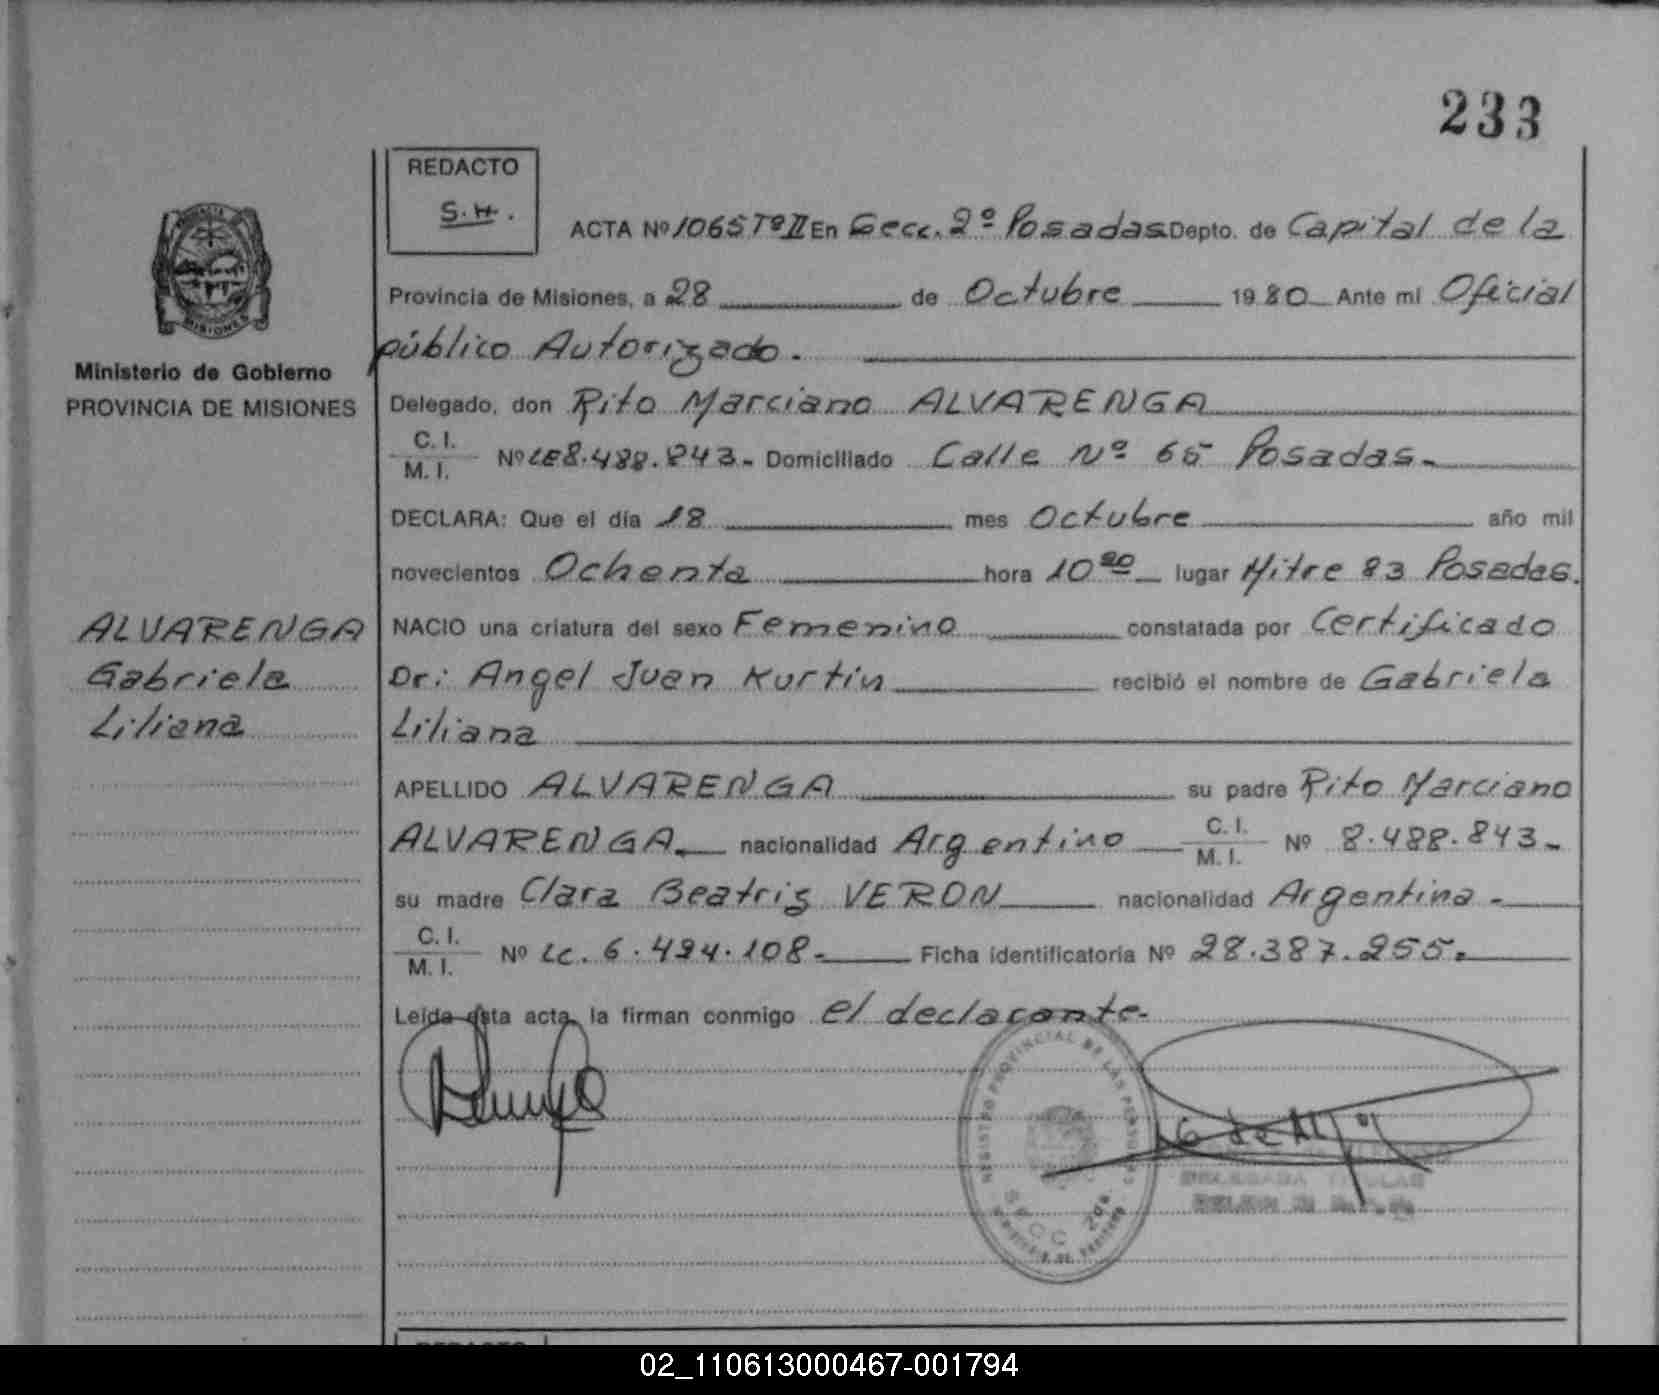 233
REDACTO
S.H.
ACTA Nº 1065 Tº II En Secc. 2º Posadas Depto. de Capital de la
Provincia de Misiones, a 28 de Octubre 1980 Ante mi Oficial
público Autorizado.
MISIONES
Ministerio de Gobierno
PROVINCIA DE MISIONES
Delegado, don Rito Marciano ALVARENGA
C. I.
M. I. Nº LE 8.488.843.- Domiciliado Calle Nº 65 Posadas.-
DECLARA: Que el día 18 mes Octubre año mil
novecientos Ochenta hora 10 lugar Mitre 83 Posadas.
ALVARENGA
Gabriela
Liliana
NACIO una criatura del sexo Femenino constatada por Certificado
Dr: Angel Juan Kurtin recibió el nombre de Gabriela
Liliana
APELLIDO ALVARENGA su padre Rito Marciano
ALVARENGA.- nacionalidad Argentino C. I. M. I. Nº 8.488.843.-
su madre Clara Beatriz VERON nacionalidad Argentina.-
C. I.
M. I. Nº LC. 6.494.108.- Ficha identificatoria Nº 28.387.255.-
Leída esta acta, la firman conmigo el declarante.-
REGISTRO PROVINCIAL DE LAS PERSONAS
SECC 2da.
DELEGADA TITULAR
REDACTO
02_110613000467-001794